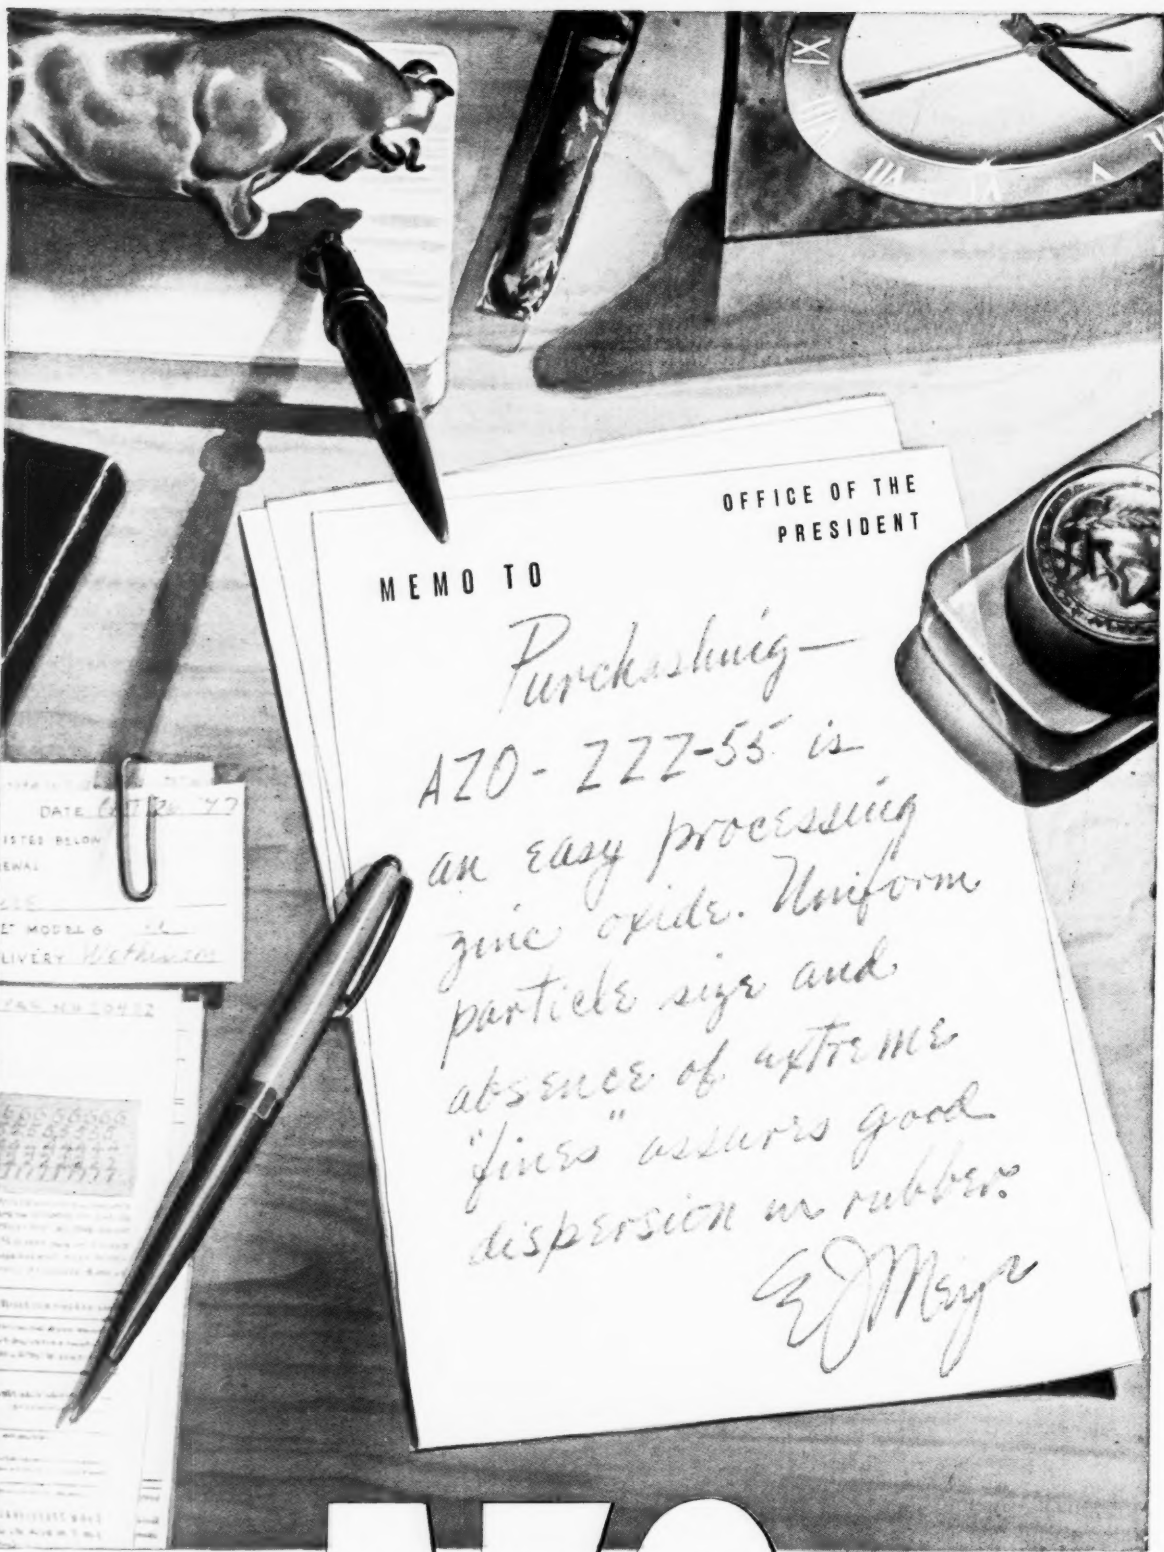 XI
VIII
VII
VI
V
OFFICE OF THE
PRESIDENT
MEMO TO
Purchashing—
AZO-ZZZ-55 is
an easy processing
zinc oxide. Uniform
particle size and
absence of extreme
"fines" assures good
dispersion in rubber.
E J Meyr
DATE OCT 26 '47
ISTED BELOW
EWAL
ET MODEL G
LIVERY
AZO